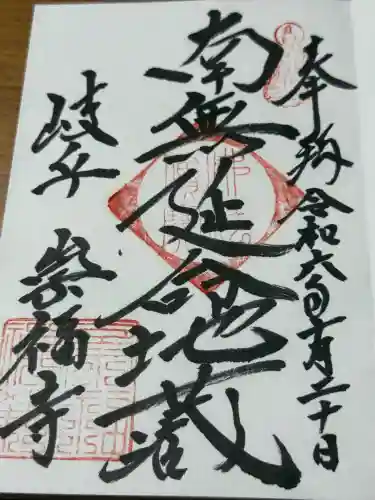 奉拜 令和六年十一月二十日
南無延命地蔵
岐阜 崇福寺